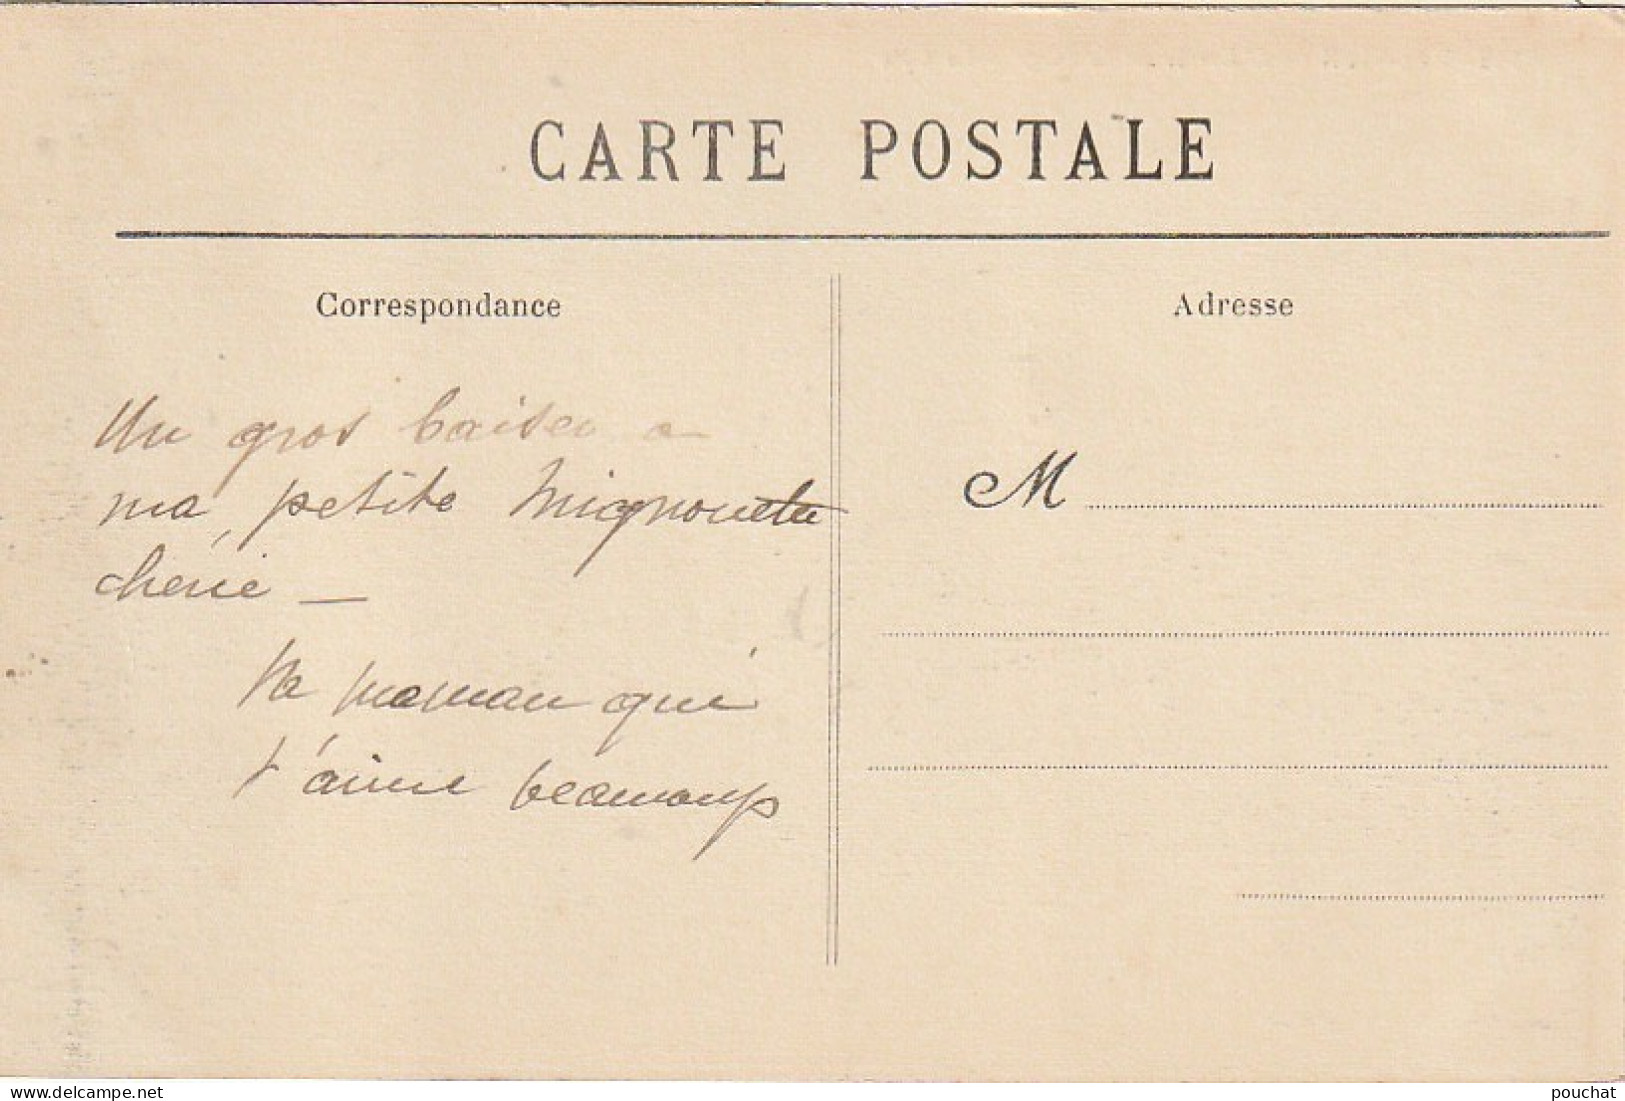 CARTE POSTALE
Correspondance
Adresse
Un gros baiser a
ma petite Mignonette
cherie —
Ta maman qui
t'aime beaucoup
M
www.delcampe.net
pouchat